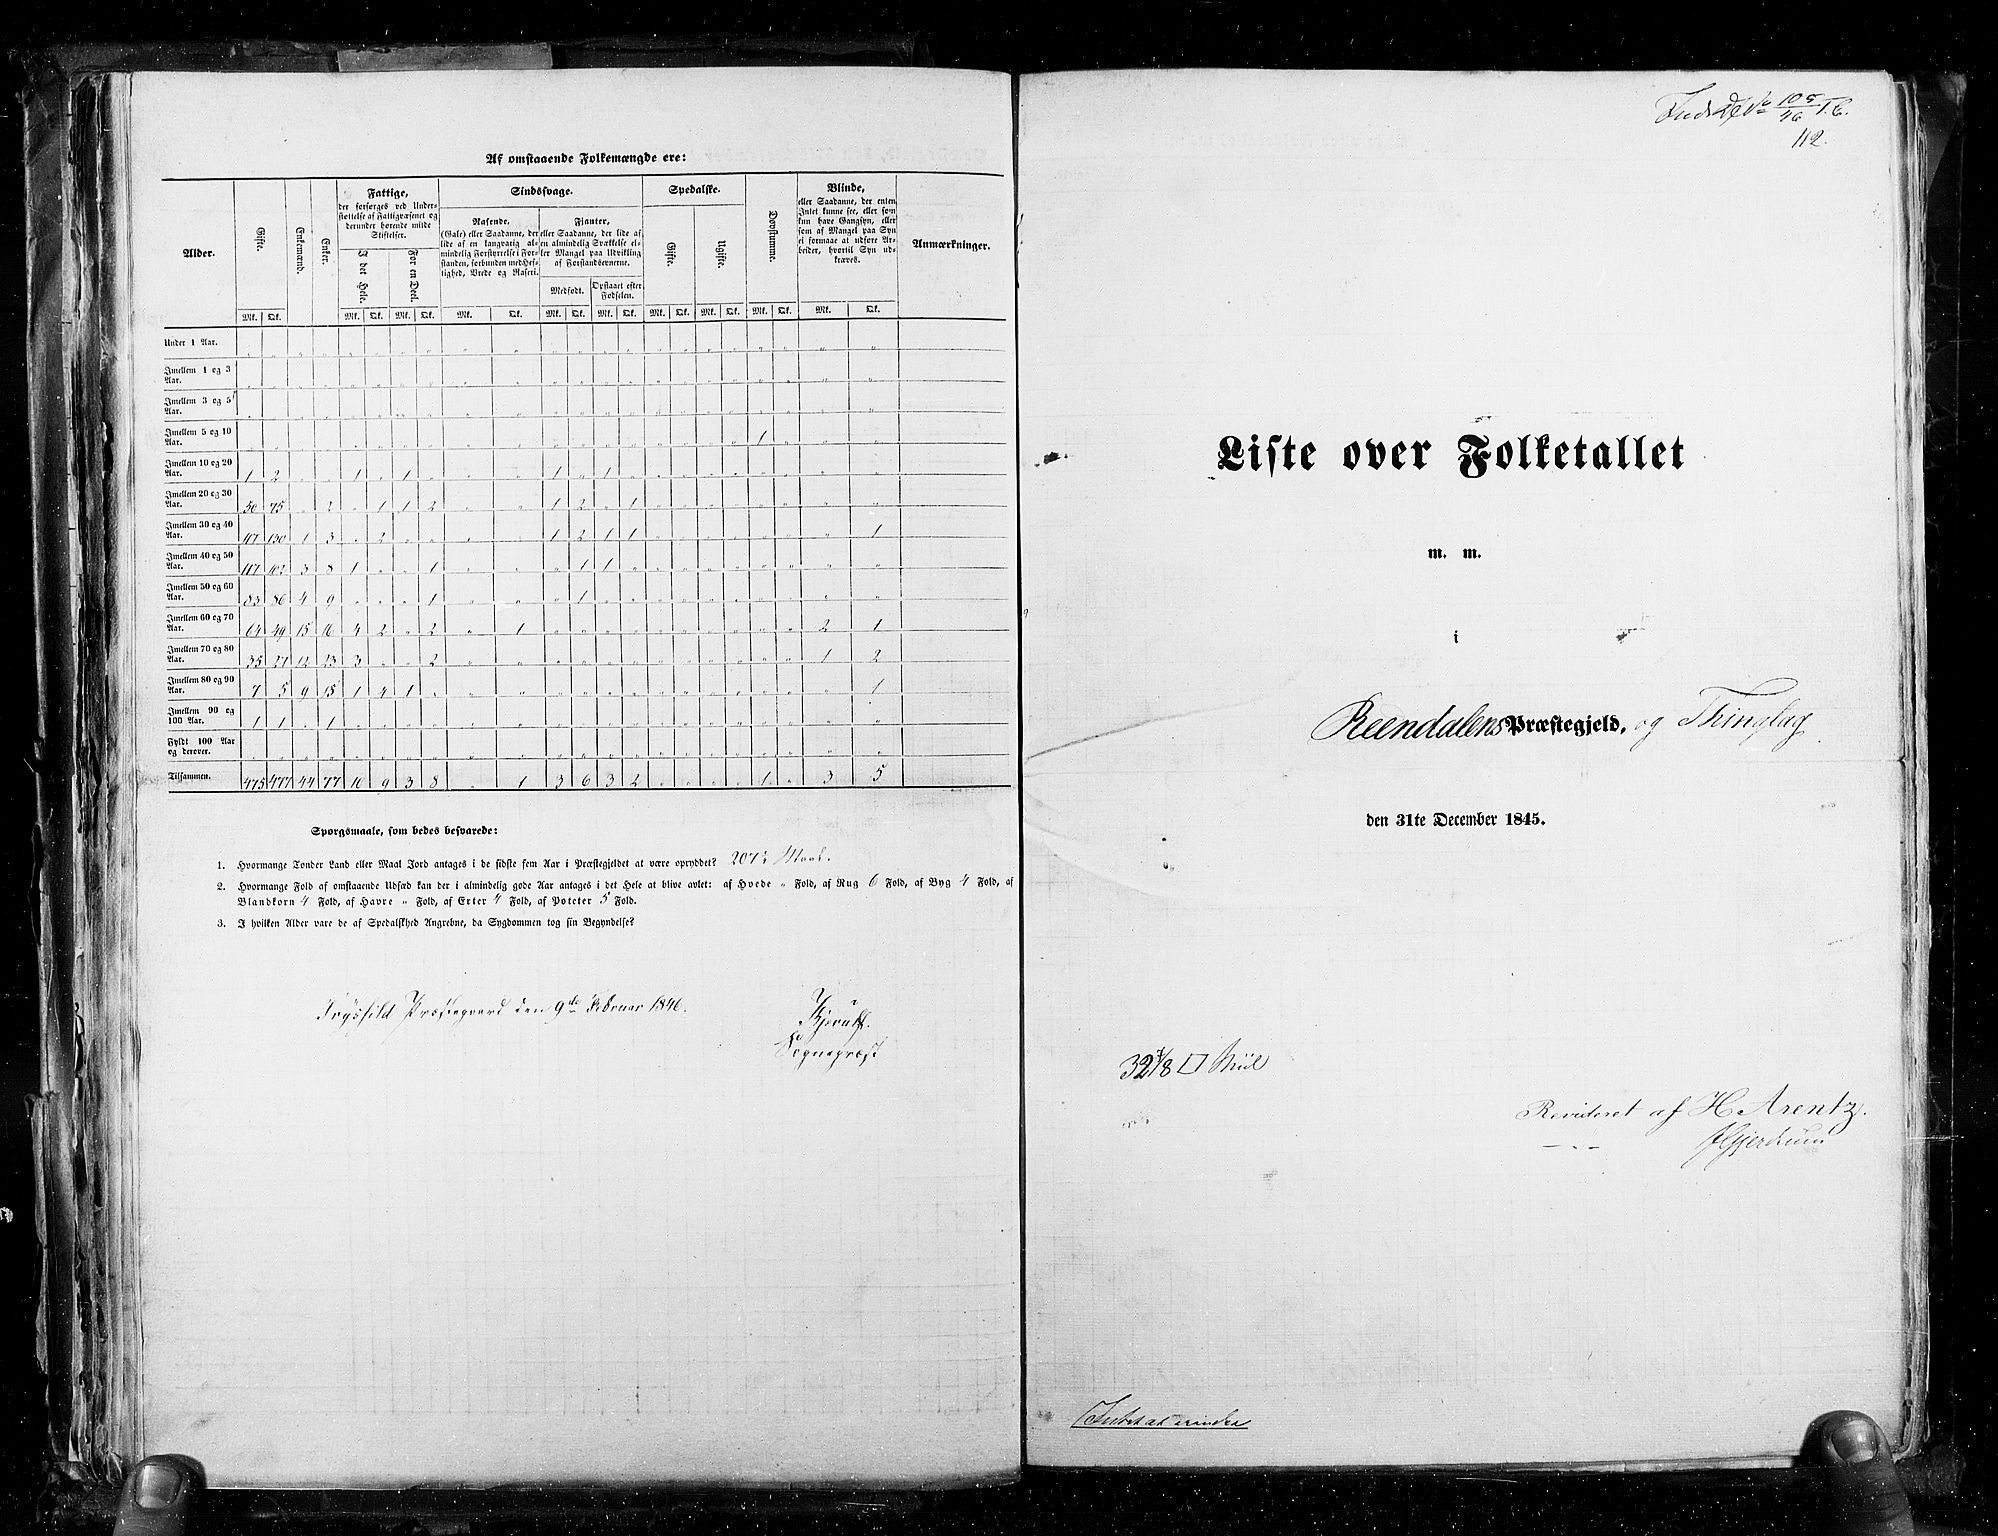 Af omstaaende Folkemængde ere:
Alder. Gifte. Enkemænd. Enker. Fattige, der forsørges ved Understøttelse af Fattigvæsenet og derunder hørende milde Stiftelser. Sindssvage. Spedalske. Døvstumme. Blinde, eller Saadanne, der enten Intet kunne see, eller som kun have Gangsyn, eller som af Mangel paa Syn ei formaae at udføre Arbeider, hvortil Syn udkræves. Anmærkninger.
I det Hele. For en Deel. Rasende. (Gale) eller Saadanne, der lide af en langvarig almindelig Forstyrrelse i Forstanden, forbunden med Heftighed, Vrede og Raseri. Fjanter, eller Saadanne, der lide af en almindelig Svækkelse eller Mangel paa Udvikling af Forstandsevnerne. Gifte. Ugifte.
Medfødt. Opstaaet efter Fødselen.
Mk. Qk. Mk. Qk. Mk. Qk. Mk. Qk. Mk. Qk. Mk. Qk. Mk. Qk. Mk. Qk. Mk. Qk. Mk. Qk.
Under 1 Aar. " " " " " " " " " " " " " " " " " " " " " "
Imellem 1 og 3 Aar. " " " " " " " " " " " " " " " " " " " " " "
Imellem 3 og 5 Aar. " " " " " " " " " " " " " " " " " " " " " "
Imellem 5 og 10 Aar. " " " " " " " " " " " " " " " " " " 1 " " "
Imellem 10 og 20 Aar. 1 2 " " 1 " 1 " " " 1 " 1 " " " " " " " " "
Imellem 20 og 30 Aar. 50 75 " 2 " 1 1 2 " " 1 2 " 1 " " " " " " " "
Imellem 30 og 40 Aar. 117 130 1 3 " 2 " " " " 1 2 1 1 " " " " " " " 1
Imellem 40 og 50 Aar. 117 102 3 8 1 " " 1 " " " 1 1 " " " " " " " " "
Imellem 50 og 60 Aar. 83 86 4 9 " " " 1 " " " 1 " " " " " " " " " "
Imellem 60 og 70 Aar. 64 49 15 16 4 2 " 2 " 1 " " " " " " " " " " 2 1
Imellem 70 og 80 Aar. 35 27 12 23 3 " " 2 " " " " " " " " " " " " 1 2
Imellem 80 og 90 Aar. 7 5 9 15 1 4 1 " " " " " " " " " " " " " " 1
Imellem 90 og 100 Aar. 1 1 " 1 " " " " " " " " " " " " " " " " " "
Fyldt 100 Aar og derover. " " " " " " " " " " " " " " " " " " " " " "
Tilsammen. 475 477 44 77 10 9 3 8 " 1 3 6 3 2 " " " " 1 " 3 5
Spørgsmaale, som bedes besvarede:
1. Hvormange Tønder Land eller Maal Jord antages i de sidste fem Aar i Præstegjeldet at være opryddet? 207½ Maal.
2. Hvormange Fold af omstaaende Udsæd kan der i almindelig gode Aar antages i det Hele at blive avlet: af Hvede " Fold, af Rug 6 Fold, af Byg 4 Fold, af
Blandkorn 4 Fold, af Havre " Fold, af Erter 4 Fold, af Poteter 5 Fold.
3. I hvilken Alder vare de af Spedalskhed Angrebne, da Sygdommen tog sin Begyndelse?
Trysild Præstegaard den 9de Februar 1846.
Kjerulf.
Sognepræst
No 105/46 T.C.
112.
Liste over Folketallet
m. m.
i
Reendalens Præstegjeld, og Thinglag
den 31te December 1845.
□ Miil
Revideret af H Arentz.
— " — Gjerdrum